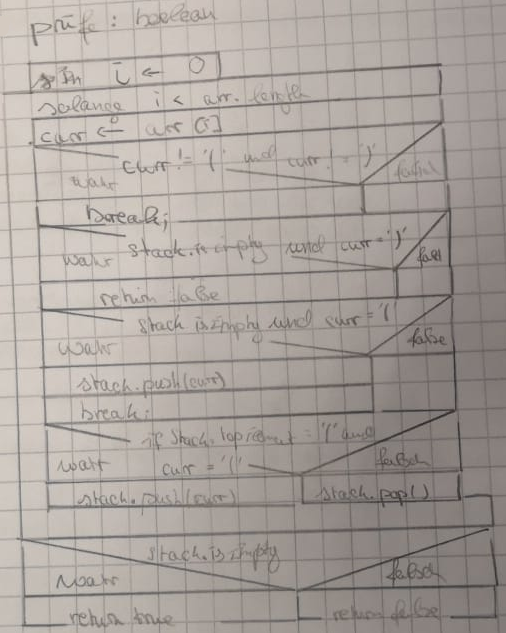 prüfe : boolean
i ← 0
solange i < arr. length
curr ← arr [i]
curr != '(' und curr != ')'
wahr falsch
break;
stack.isEmpty und curr = ')'
wahr falsch
return false
stack isEmpty und curr = '('
wahr false
stack.push(curr)
break;
if stack.topElement = '(' and
curr = '('
wahr falsch
stack.push(curr) stack.pop()
stack.isEmpty
wahr falsch
return true return false